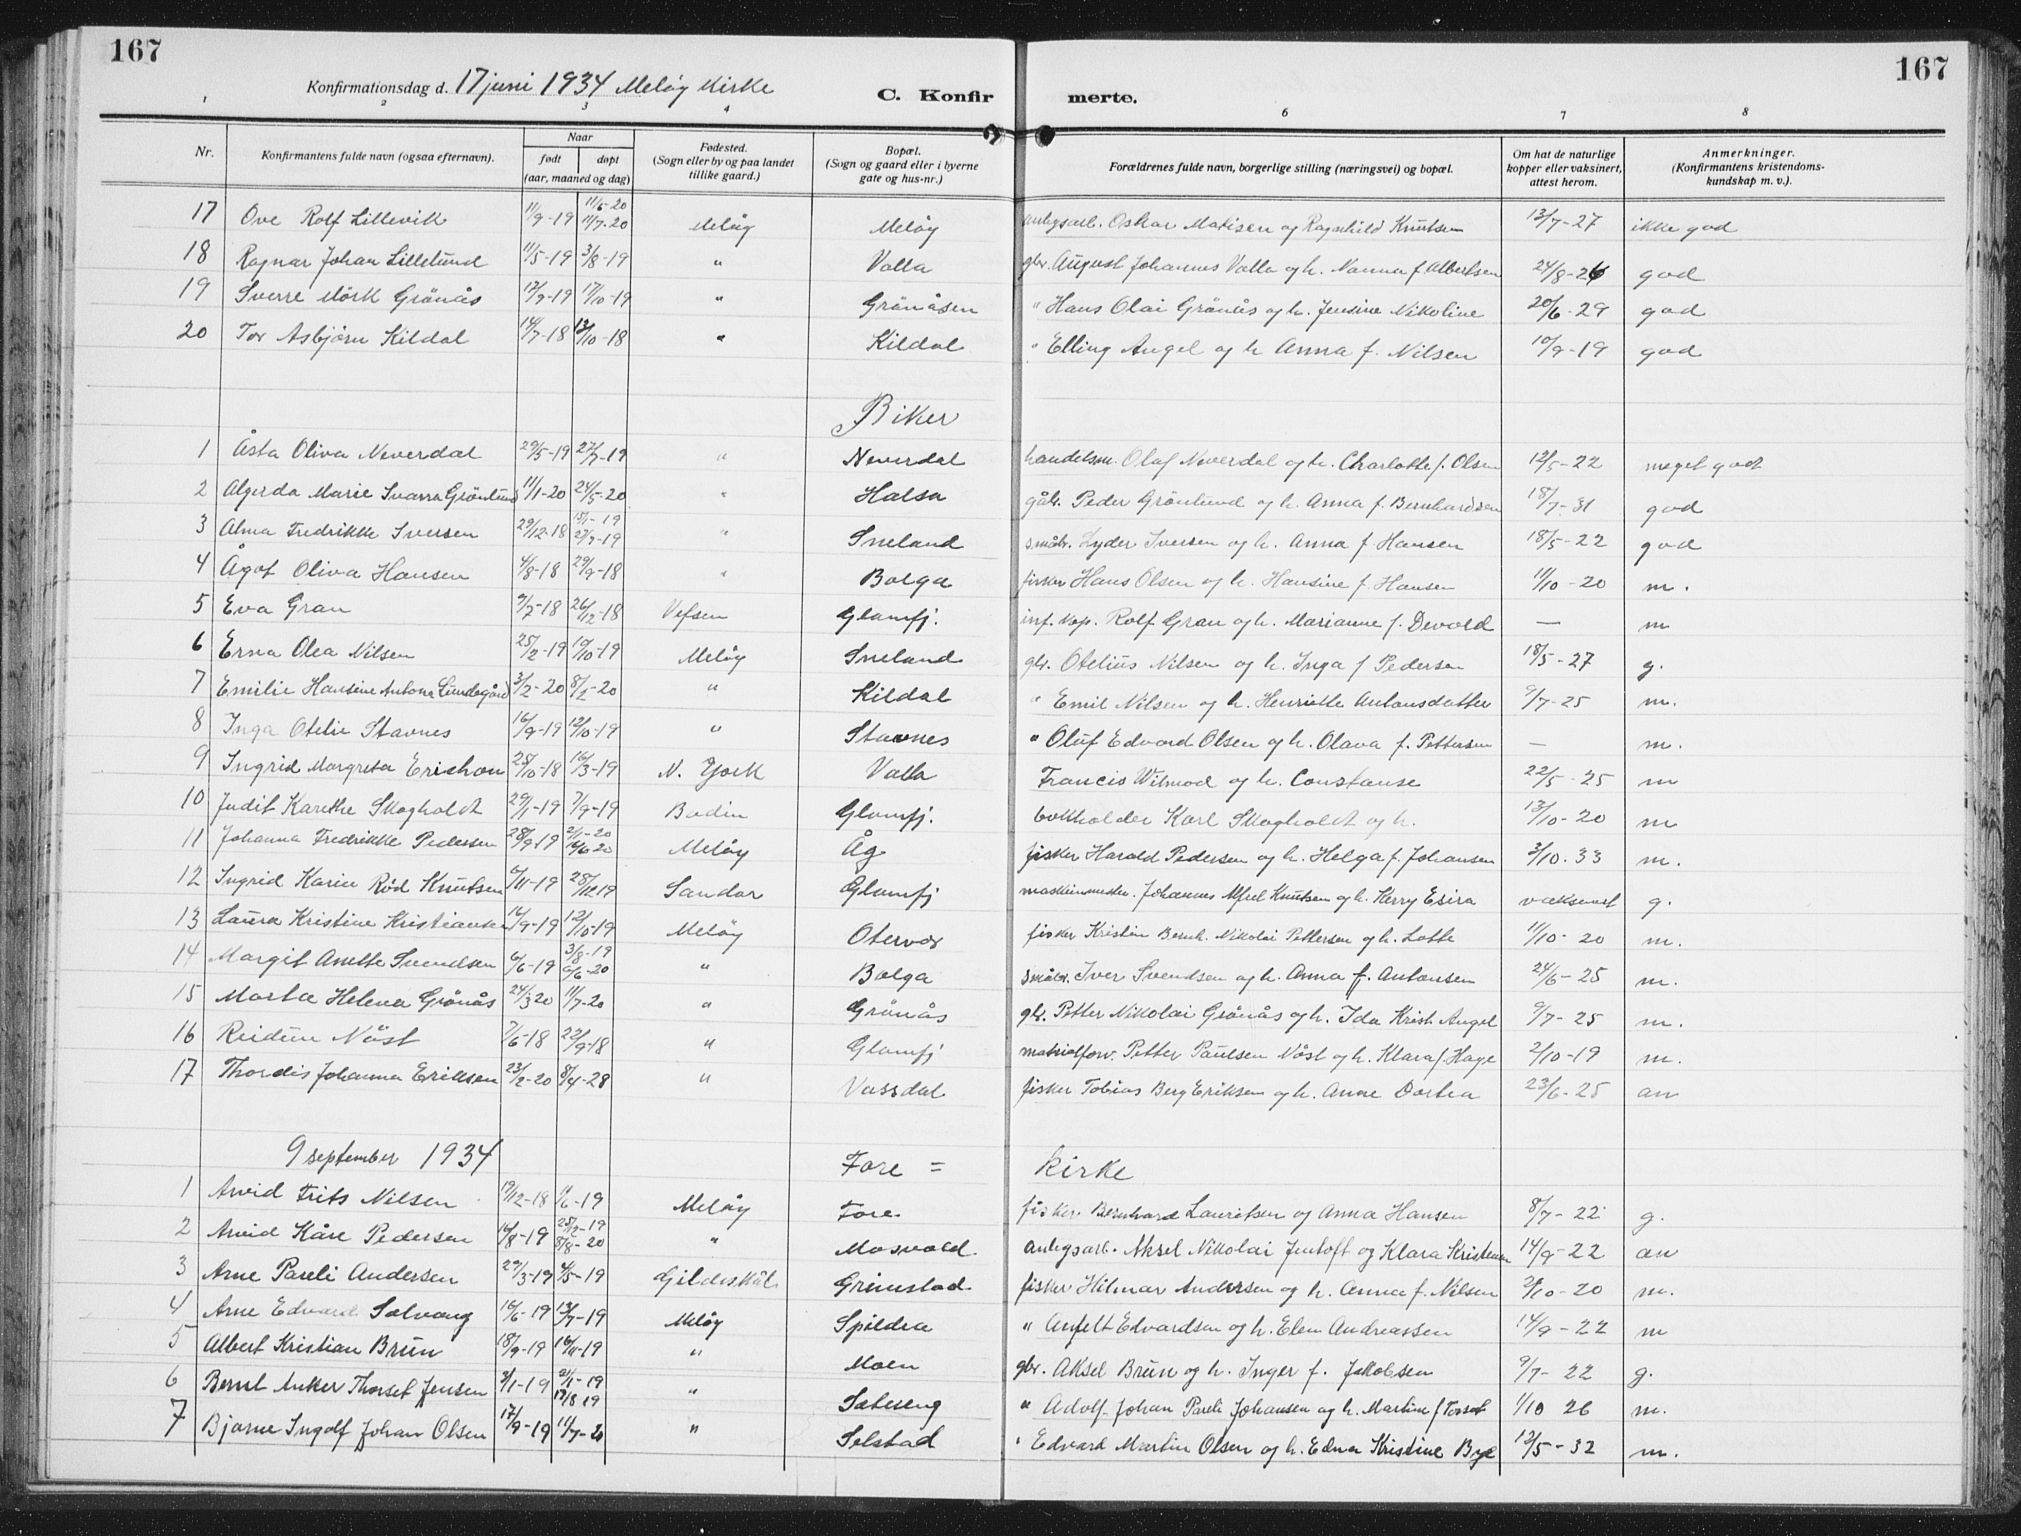 167
167
Konfirmationsdag d. 17 juni 1934 Meløy Kirke
C. Konfirmerte.
1 2 3 4 6 7 8
Nr. Konfirmantens fulde navn (ogsaa efternavn). Naar født døpt (aar, maaned og dag) Fødested. (Sogn eller by og paa landet tillike gaard.) Bopæl. (Sogn og gaard eller i byerne gate og hus-nr.) Forældrenes fulde navn, borgerlige stilling (næringsvei) og bopæl. Om hat de naturlige kopper eller vaksinert, attest herom. Anmerkninger. (Konfirmantens kristendoms-kundskap m. v.).
17 Ove Rolf Lillevik 11/9-19 11/5-20 11/7-20 Meløy Meløy anlegsarb. Oskar Matisen og Ragnhild Knutsen 13/7-27 ikke god
18 Ragnar Johan Lillelund 11/5-19 3/8-19 " Valla gbr. August Johannes Valla og h. Nanna f. Albertsen 24/8-26 god
19 Sverre Mörk Grönås 12/9-19 19/10-19 " Grönåsen " Hans Olai Grönås og h. Jensine Nikoline 20/6-29 god
20 Tor Asbjørn Kildal 14/7-18 13/10-18 " Kildal " Elling Angel og h Anna f. Nilsen 10/9-19 god
Piker
1 Åsta Oliva Neverdal 29/5-19 27/7-19 " Neverdal handelsm. Olaf Neverdal og h. Charlotte f. Olsen 12/5-22 meget godt
2 Algerda Marie Svarra Grönlund 11/1-20 24/5-20 " Halsa gåbr. Peder Grönlund og h. Anna f. Bernhardsen 18/7-31 god
3 Alma Fredrikke Iversen 29/12-18 15/1-19 27/7-19 " Sneland småbr. Lyder Iversen og h. Anna f. Hansen 18/5-22 god
4 Ågot Oliva Hansen 4/8-18 29/9-18 " Bolga fisker Hans Olsen og h. Hansine f. Hansen 11/10-20 m.
5 Eva Gran 9/7-18 26/12-18 Vefsen Glomfj. inf. kap. Rolf Gran og h. Marianne f. Devold — m
6 Erna Olea Nilsen 25/2-19 19/10-19 Meløy Sneland gbr. Otelius Nilsen og h. Inga f Pedersen 18/5-27 g.
7 Emilie Hansine Antona Lundegård 3/2-20 8/2-20 " Kildal " Emil Nilsen og h. Henriette Antonsdatter 9/7-25 m.
8 Inga Otelie Stavnes 16/9-19 12/10-19 " Stavnes " Oluf Edvard Olsen og h. Olava f. Pettersen — m.
9 Ingrid Margreta Erickson 25/10-18 16/3-19 N. York Valla Francis Wilmod og h. Constanse 22/5-25 m
10 Judit Karethe Skogholdt 29/1-19 7/9-19 Bodin Glomfj. bokholder Karl Skogholdt og h. 13/10-20 m
11 Johanna Fredrikke Pedersen 28/9-19 2/1-20 16/6-20 Meløy Åg fisker Harald Pedersen og h. Helga f. Johansen 3/10-33 m.
12 Ingrid Karin Röd Knutsen 6/11-19 28/12-19 Sandar Glomfj maskinmester. Johannes Alfred Knutsen og h. Herry Esira vaksinert g.
13 Laura Kristine Kristiansen 14/9-19 12/10-19 Meløy Otervær fisker Kristin Bernh. Nikolai Pettersen og h. Lotte 11/10-20 m.
14 Margit Anette Svendsen 6/6-19 3/8-19 6/6-20 " Bolga småbr. Iver Svendsen og h. Anna f. Antonsen 24/6-25 m.
15 Marta Helena Grönås 24/3-20 11/7-20 " Grönås gbr. Petter Nikolai Grönås og h. Ida Krist. Angel 9/7-25 m.
16 Reidun Nöst 7/6-18 22/9-18 " Glomfj matrialforv. Petter Paulsen Nöst og h. Klara f. Hage 2/10-19 m.
17 Thordis Johanna Eriksen 23/2-20 8/4-28 " Vassdal fisker Tobias Berg Eriksen og h. Anne Dortea 23/6-25 an
9 september 1934 Fore = kirke
1 Arvid Frits Nilsen 19/12-18 1/6-19 Meløy Fore fisker Bernhard Lauritsen og Anna Hansen 8/7-22 g.
2 Arvid Kåre Pedersen 16/8-19 28/12-19 8/8-20 " Mosvold anlegsarb. Aksel Nikolai Jentoft og Klara Kristensen 14/9-22 an
3 Arne Pareli Andersen 29/3-19 4/5-19 Gildeskål Grimstad fisker Hilmar Andersen og h. Anna f. Nilsen 2/10-20 m.
4 Arne Edvard Solvang 16/6-19 13/7-19 Meløy Spildra " Anfelt Edvardsen og h. Elen Andreassen 14/9-22 m
5 Albert Kristian Brun 18/9-19 16/11-19 " Moen gbr. Aksel Brun og h. Inger f. Jakobsen 9/7-22 g.
6 Bernt Anker Thorset Jensen 2/1-19 2/1-19 17/8 19 " Sæteseng " Adolf Johan Pareli Johansen og h. Martine f Torset 1/10 26 m.
7 Bjarne Ingolf Johan Olsen 17/9-19 11/7-20 " Selstad " Edvard Martin Olsen og h. Edna Kristine Bye 13/5-32 m.